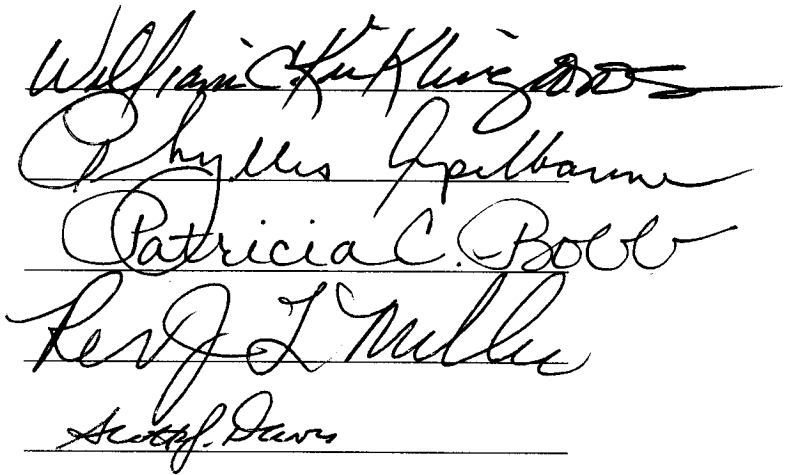 William C. Kirkling DDS
Phyllis Apelbaum
Patricia C. Bobb
Rev J L Miller
Scott J. Davis